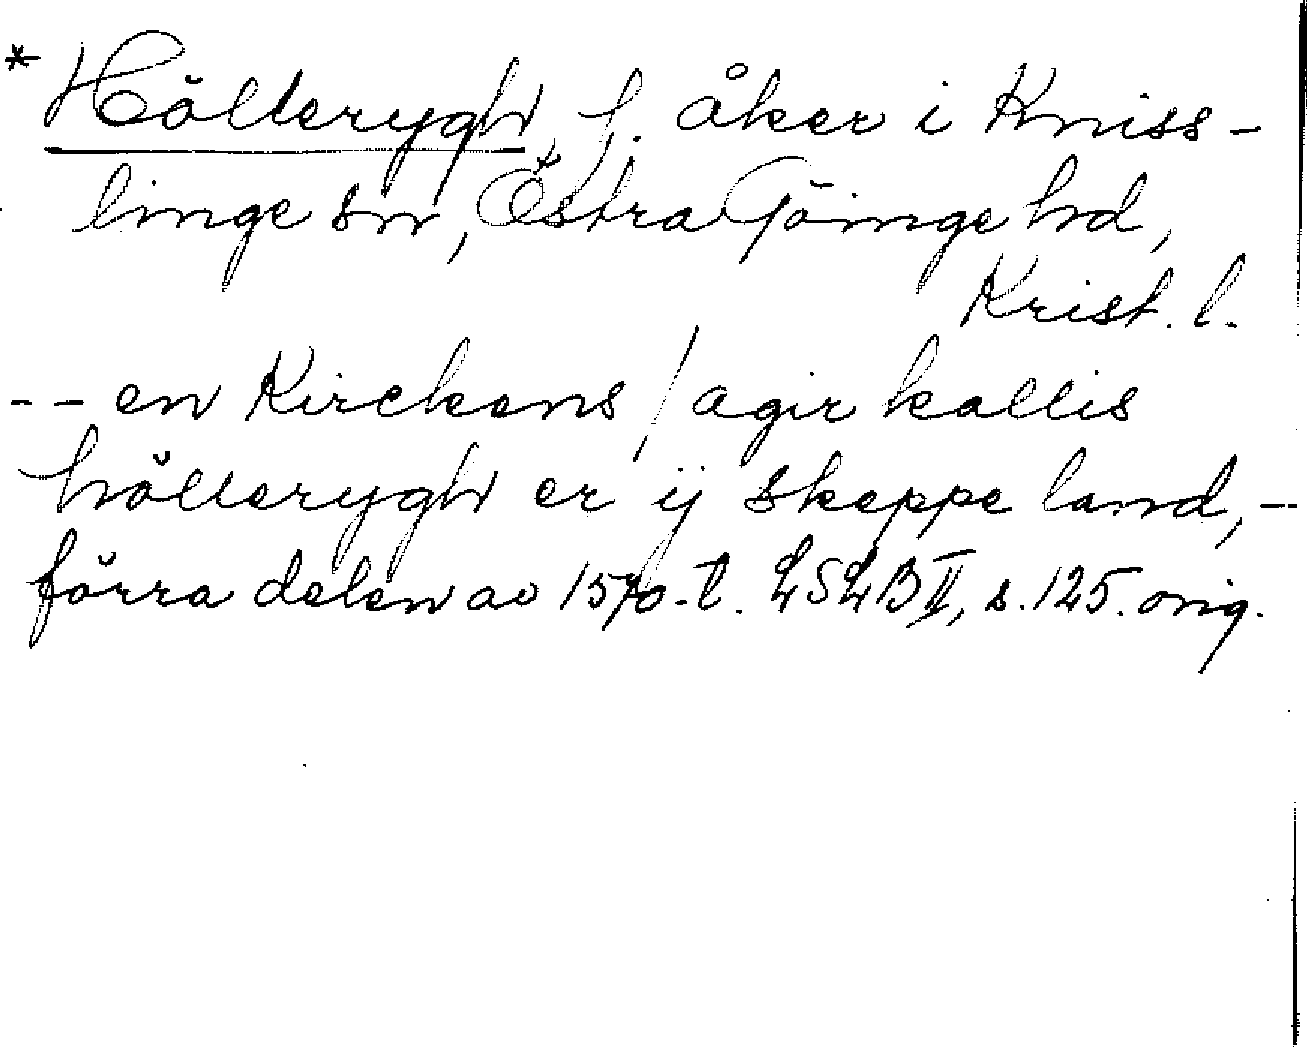 * Hölterygh, f. åker i Kniss-
linge sn, Östra Göinge hd,
Krist. l.
-- en Kirckens / agir kallis
hölterygh er ij skeppe land, -
förra delen av 1570-t. LSLB II, s. 125. orig.